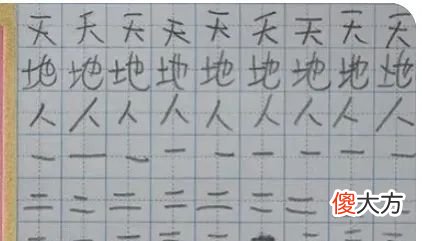 天天天天天天天天天
地地地地地地地地地
人人人人人人人人人
一一一一一一一一一
二二二二二二二
傻大方